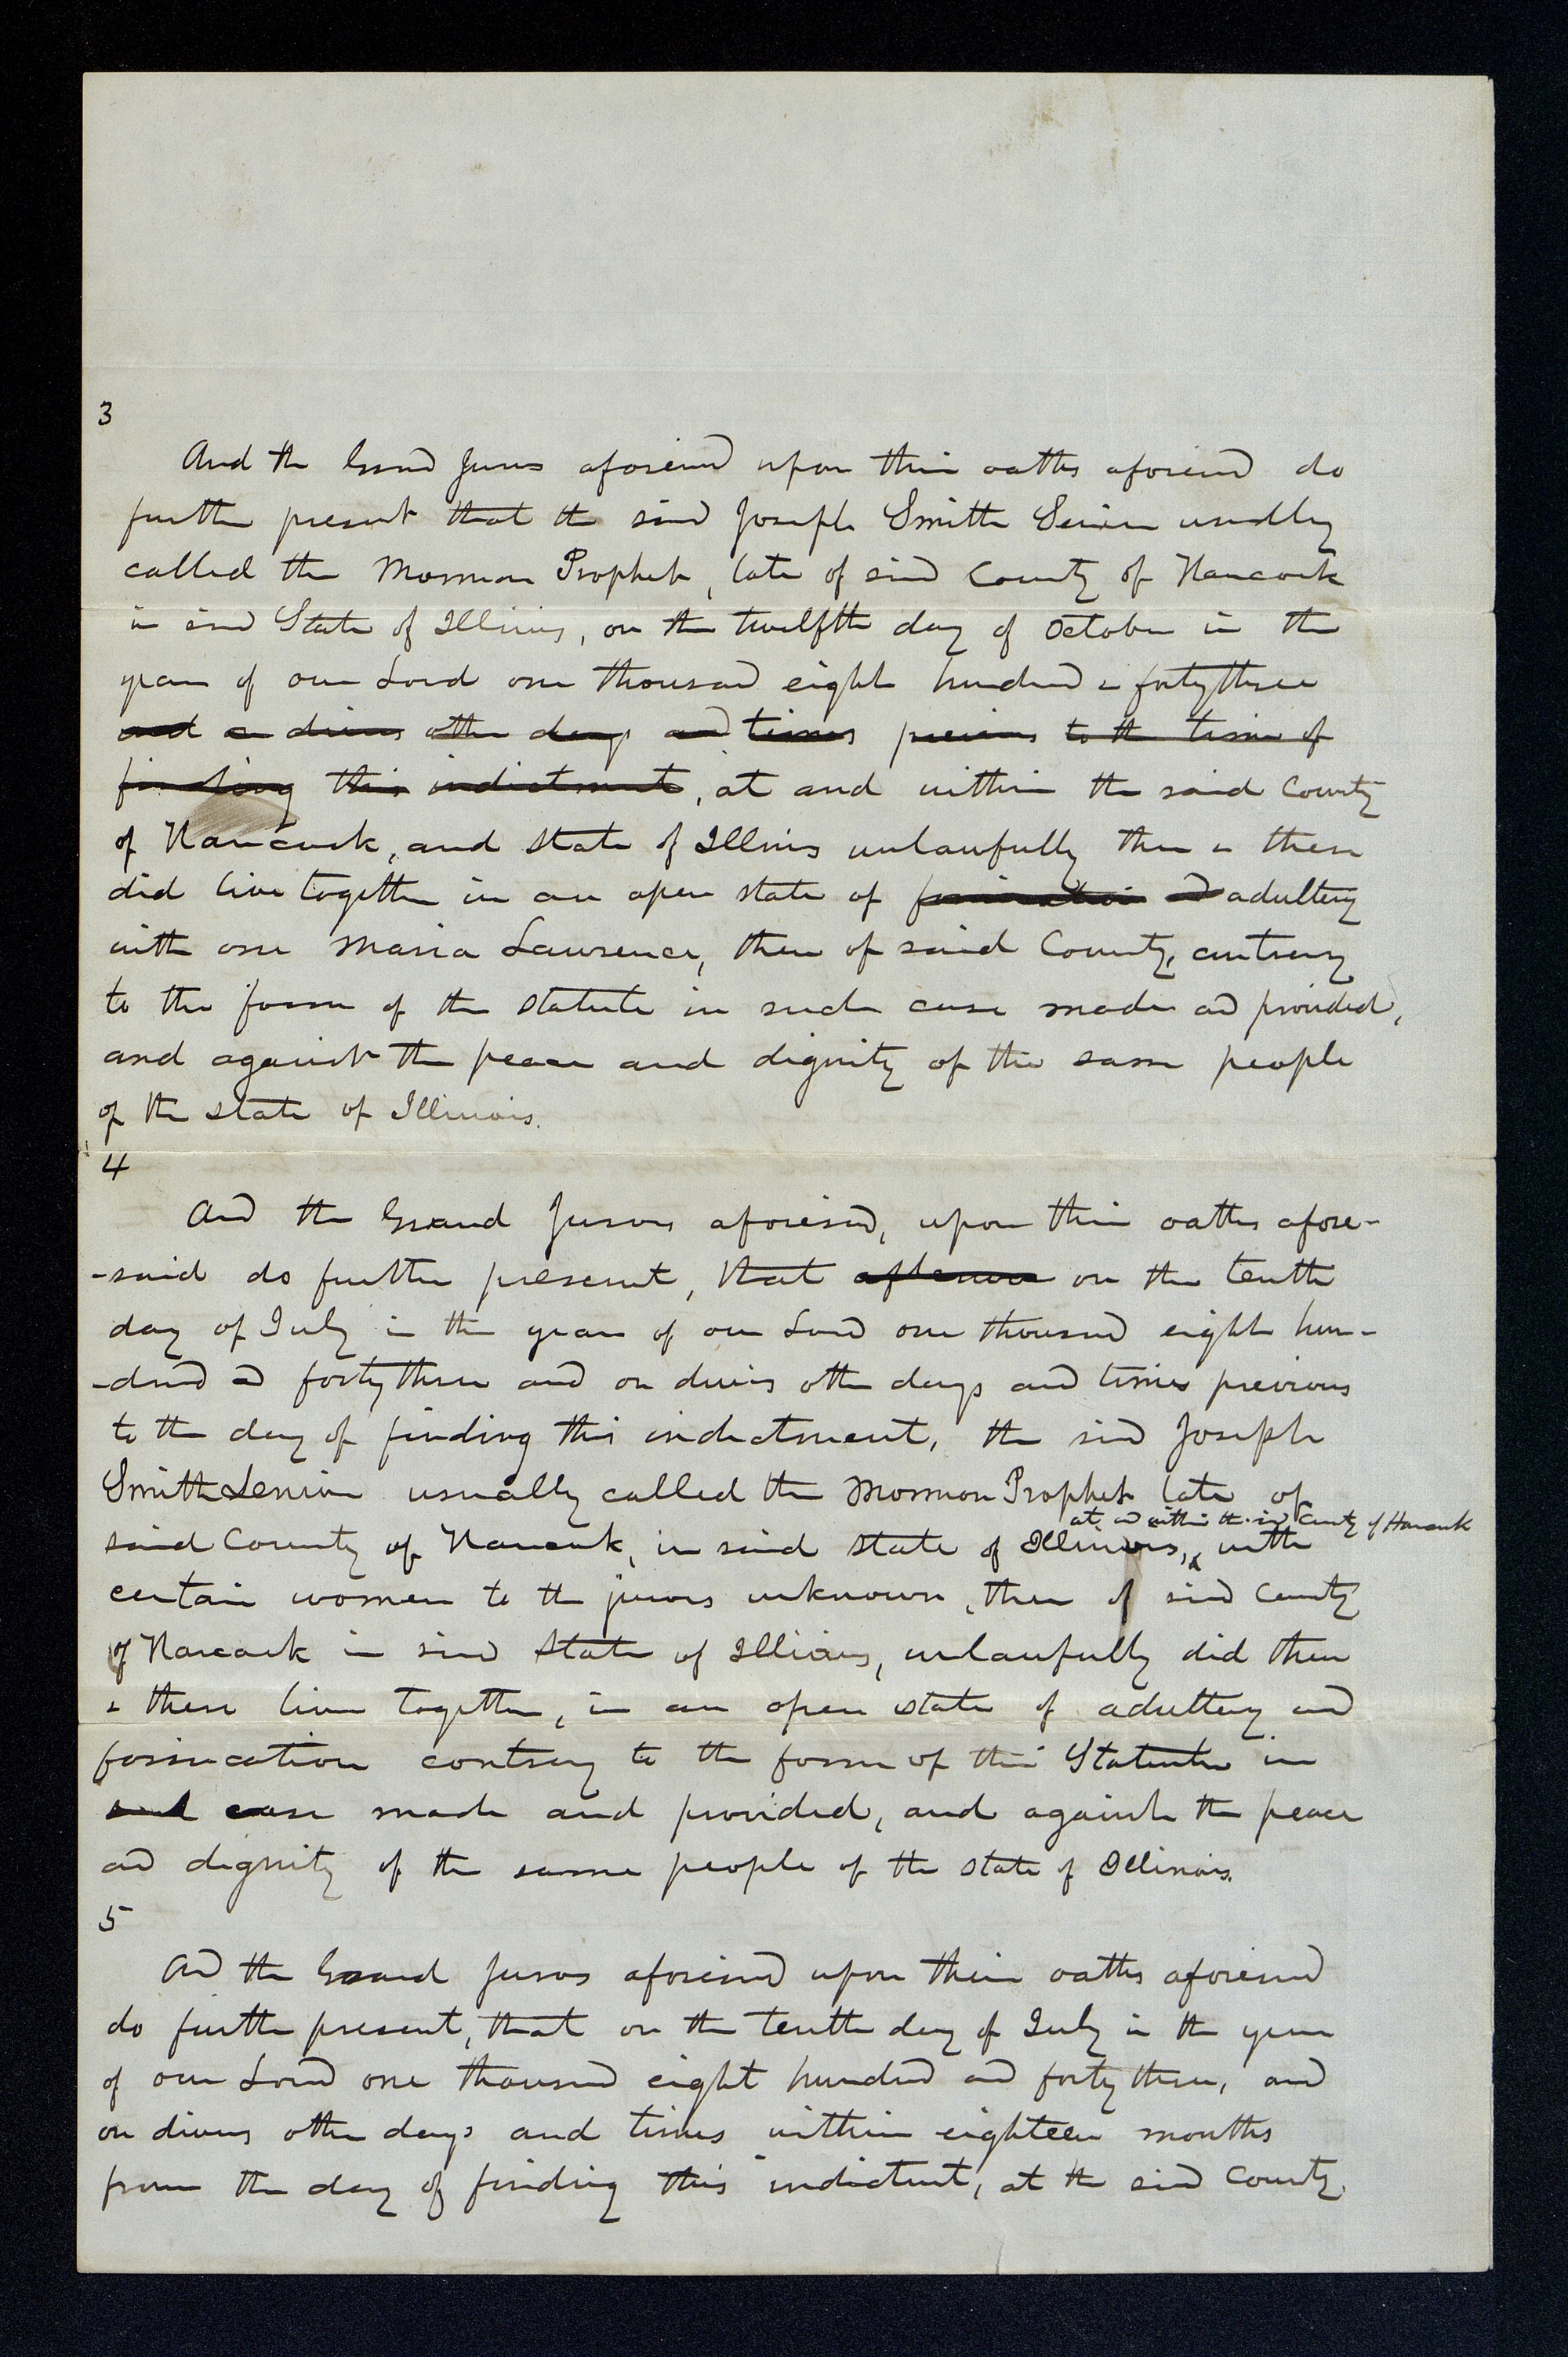 3
And the Grand Jurors aforesaid upon their oaths aforesaid do
further present that the said Joseph Smith Senior usually
called the Mormon Prophet, late of said County of Hancock
in said State of Illinois, on the twelfth day of October in the
year of our Lord one thousand eight hundred & forty three
and on divers other days and times previous to the time of
finding this indictment, at and within the said County
of Hancock, and State of Illinois unlawfully then & there
did live together in an open state of fornication and adultery
with one Maria Lawrence, then of said County, contrary
to the form of the statute in such case made and provided,
and against the peace and dignity of the same people
of the state of Illinois.
4
And the Grand Jurors aforesaid, upon their oaths afore-
-said do further present, that on the tenth
day of July in the year of our Lord one thousand eight hun-
-dred and forty three and on divers other days and times previous
to the day of finding this indictment, the said Joseph
Smith Senior usually called the Mormon Prophet late of
at and within the said County of Hancock
said County of Hancock, in said state of Illinois, with
certain women to the jurors unknown, then of said County
of Hancock in said State of Illinois, unlawfully did then
& there live together, in an open state of adultery and
fornication contrary to the form of the Statute in
such case made and provided, and against the peace
and dignity of the same people of the state of Illinois.
5
And the Grand Jurors aforesaid upon their oaths aforesaid
do further present, that on the tenth day of July in the year
of our Lord one thousand eight hundred and forty three, and
on divers other days and times within eighteen months
from the day of finding this indictment, at the said County